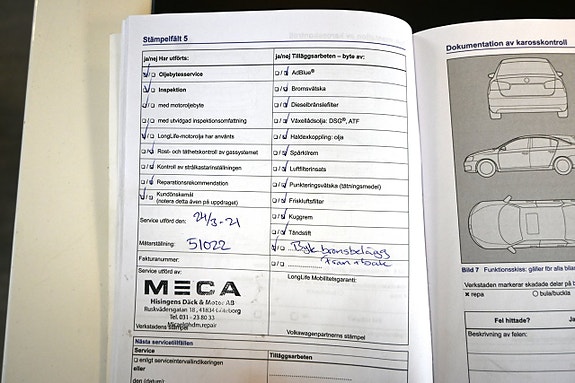 Stämpelfält 5
ja/nej Har utförts:
Oljebytesservice
Inspektion
med motoroljebyte
med utvidgad inspektionsomfattning
LongLife-motorolja har använts
Rost- och täthetskontroll av gassystemet
Kontroll av strålkastarinställningen
Reparationsrekommendation
Kundönskemål
(notera detta även på uppdraget)
Service utförd den: 24/3-21
Mätarställning: 51022
Fakturanummer:
Service utförd av:
MECA
Hisingens Däck & Motor AB
Ruskvädersgatan 18, 41834 Göteborg
Tel. 031 - 23 80 33
Verkstadens stämpel
ja/nej Tilläggsarbeten – byte av:
AdBlue®
Bromsvätska
Dieselbränslefilter
Växellådsolja: DSG®, ATF
Haldexkoppling: olja
Spårkilrem
Luftfilterinsats
Punkteringsvätska (tätningsmedel)
Friskluftsfilter
Kuggrem
Tändstift
Byte bromsbelägg
fram + bak
LongLife Mobilitetsgaranti:
Volkswagenpartnerns stämpel
Nästa servicetillfällen
Service
enligt serviceintervallindikeringen
eller
den (datum)
Tilläggsarbeten
Dokumentation av karosskontroll
Bild 7 Funktionsskiss: gäller för alla bilar
Verkstaden markerar skadade delar på b
repa
bula/buckla
Fel hittade?
Ja
Beskrivning av felen: